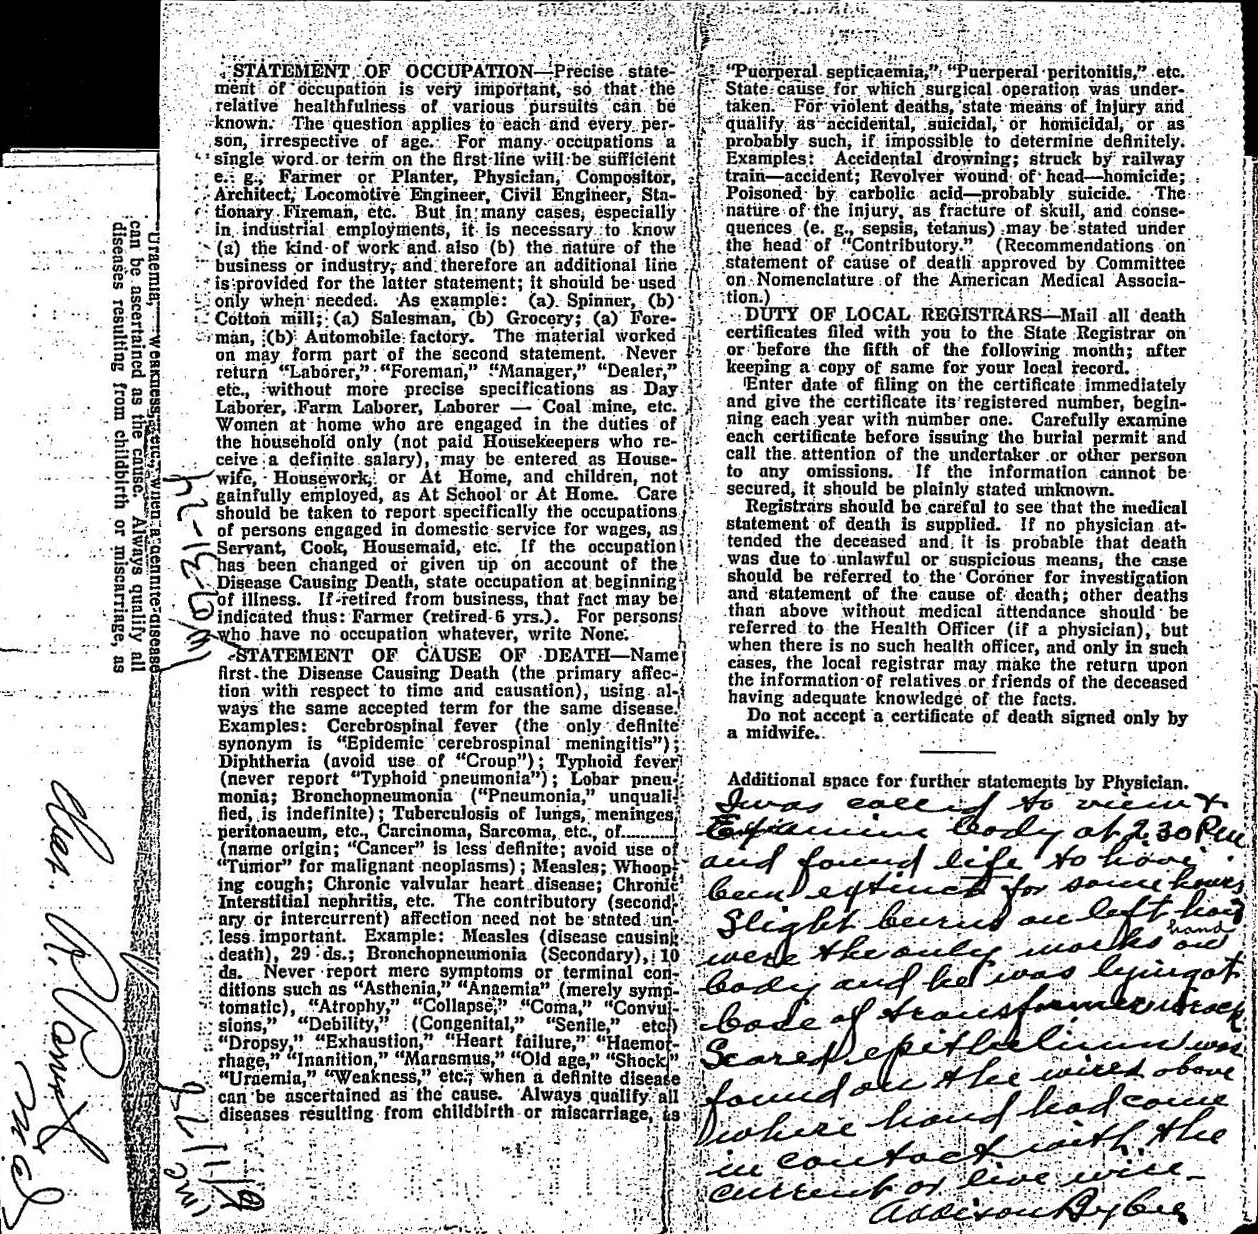 STATEMENT OF OCCUPATION—Precise state-
ment of occupation is very important, so that the
relative healthfulness of various pursuits can be
known. The question applies to each and every per-
son, irrespective of age. For many occupations a
single word or term on the first line will be sufficient
e. g., Farmer or Planter, Physician, Compositor,
Architect, Locomotive Engineer, Civil Engineer, Sta-
tionary Fireman, etc. But in many cases, especially
in industrial employments, it is necessary to know
(a) the kind of work and also (b) the nature of the
business or industry, and therefore an additional line
is provided for the latter statement; it should be used
only when needed. As example: (a) Spinner, (b)
Cotton mill; (a) Salesman, (b) Grocery; (a) Fore-
man, (b) Automobile factory. The material worked
on may form part of the second statement. Never
return "Laborer," "Foreman," "Manager," "Dealer,"
etc., without more precise specifications as Day
Laborer, Farm Laborer, Laborer — Coal mine, etc.
Women at home who are engaged in the duties of
the household only (not paid Housekeepers who re-
ceive a definite salary), may be entered as House-
wife, Housework, or At Home, and children, not
gainfully employed, as At School or At Home. Care
should be taken to report specifically the occupations
of persons engaged in domestic service for wages, as
Servant, Cook, Housemaid, etc. If the occupation
has been changed or given up on account of the
Disease Causing Death, state occupation at beginning
of illness. If retired from business, that fact may be
indicated thus: Farmer (retired 6 yrs.). For persons
who have no occupation whatever, write None.
STATEMENT OF CAUSE OF DEATH—Name
first the Disease Causing Death (the primary affec-
tion with respect to time and causation), using al-
ways the same accepted term for the same disease.
Examples: Cerebrospinal fever (the only definite
synonym is "Epidemic cerebrospinal meningitis");
Diphtheria (avoid use of "Croup"); Typhoid fever
(never report "Typhoid pneumonia"); Lobar pneu-
monia; Bronchopneumonia ("Pneumonia," unquali-
fied, is indefinite); Tuberculosis of lungs, meninges,
peritonaeum, etc., Carcinoma, Sarcoma, etc., of..........
(name origin; "Cancer" is less definite; avoid use of
"Tumor" for malignant neoplasms); Measles; Whoop-
ing cough; Chronic valvular heart disease; Chronic
Interstitial nephritis, etc. The contributory (second-
ary or intercurrent) affection need not be stated un-
less important. Example: Measles (disease causing
death), 29 ds.; Bronchopneumonia (Secondary), 10
ds. Never report mere symptoms or terminal con-
ditions such as "Asthenia," "Anaemia" (merely symp-
tomatic), "Atrophy," "Collapse," "Coma," "Convul-
sions," "Debility," (Congenital," "Senile," etc)
"Dropsy," "Exhaustion," "Heart failure," "Haemor-
rhage," "Inanition," "Marasmus," "Old age," "Shock,"
"Uraemia," "Weakness," etc., when a definite disease
can be ascertained as the cause. Always qualify all
diseases resulting from childbirth or miscarriage, as
"Puerperal septicaemia," "Puerperal peritonitis," etc.
State cause for which surgical operation was under-
taken. For violent deaths, state means of injury and
qualify as accidental, suicidal, or homicidal, or as
probably such, if impossible to determine definitely.
Examples: Accidental drowning; struck by railway
train—accident; Revolver wound of head—homicide;
Poisoned by carbolic acid—probably suicide. The
nature of the injury, as fracture of skull, and conse-
quences (e. g., sepsis, tetanus) may be stated under
the head of "Contributory." (Recommendations on
statement of cause of death approved by Committee
on Nomenclature of the American Medical Associa-
tion.)
DUTY OF LOCAL REGISTRARS—Mail all death
certificates filed with you to the State Registrar on
or before the fifth of the following month; after
keeping a copy of same for your local record.
Enter date of filing on the certificate immediately
and give the certificate its registered number, begin-
ning each year with number one. Carefully examine
each certificate before issuing the burial permit and
call the attention of the undertaker or other person
to any omissions. If the information cannot be
secured, it should be plainly stated unknown.
Registrars should be careful to see that the medical
statement of death is supplied. If no physician at-
tended the deceased and it is probable that death
was due to unlawful or suspicious means, the case
should be referred to the Coroner for investigation
and statement of the cause of death; other deaths
than above without medical attendance should be
referred to the Health Officer (if a physician), but
when there is no such health officer, and only in such
cases, the local registrar may make the return upon
the information of relatives or friends of the deceased
having adequate knowledge of the facts.
Do not accept a certificate of death signed only by
a midwife.
Additional space for further statements by Physician.
I was called to view &
Examine body at 2 30 Pm
and found life to have
been extinct for some hours
Slight burns on left hand
were the only marks on
body and he was lying at
base of transformer
epithelium was
found on the wires above
where hand had come
in contact with the
current or live wire
Addison
"Uraemia," "Weakness," etc., when a definite disease
can be ascertained as the cause. Always qualify all
diseases resulting from childbirth or miscarriage, as
Chas. R.